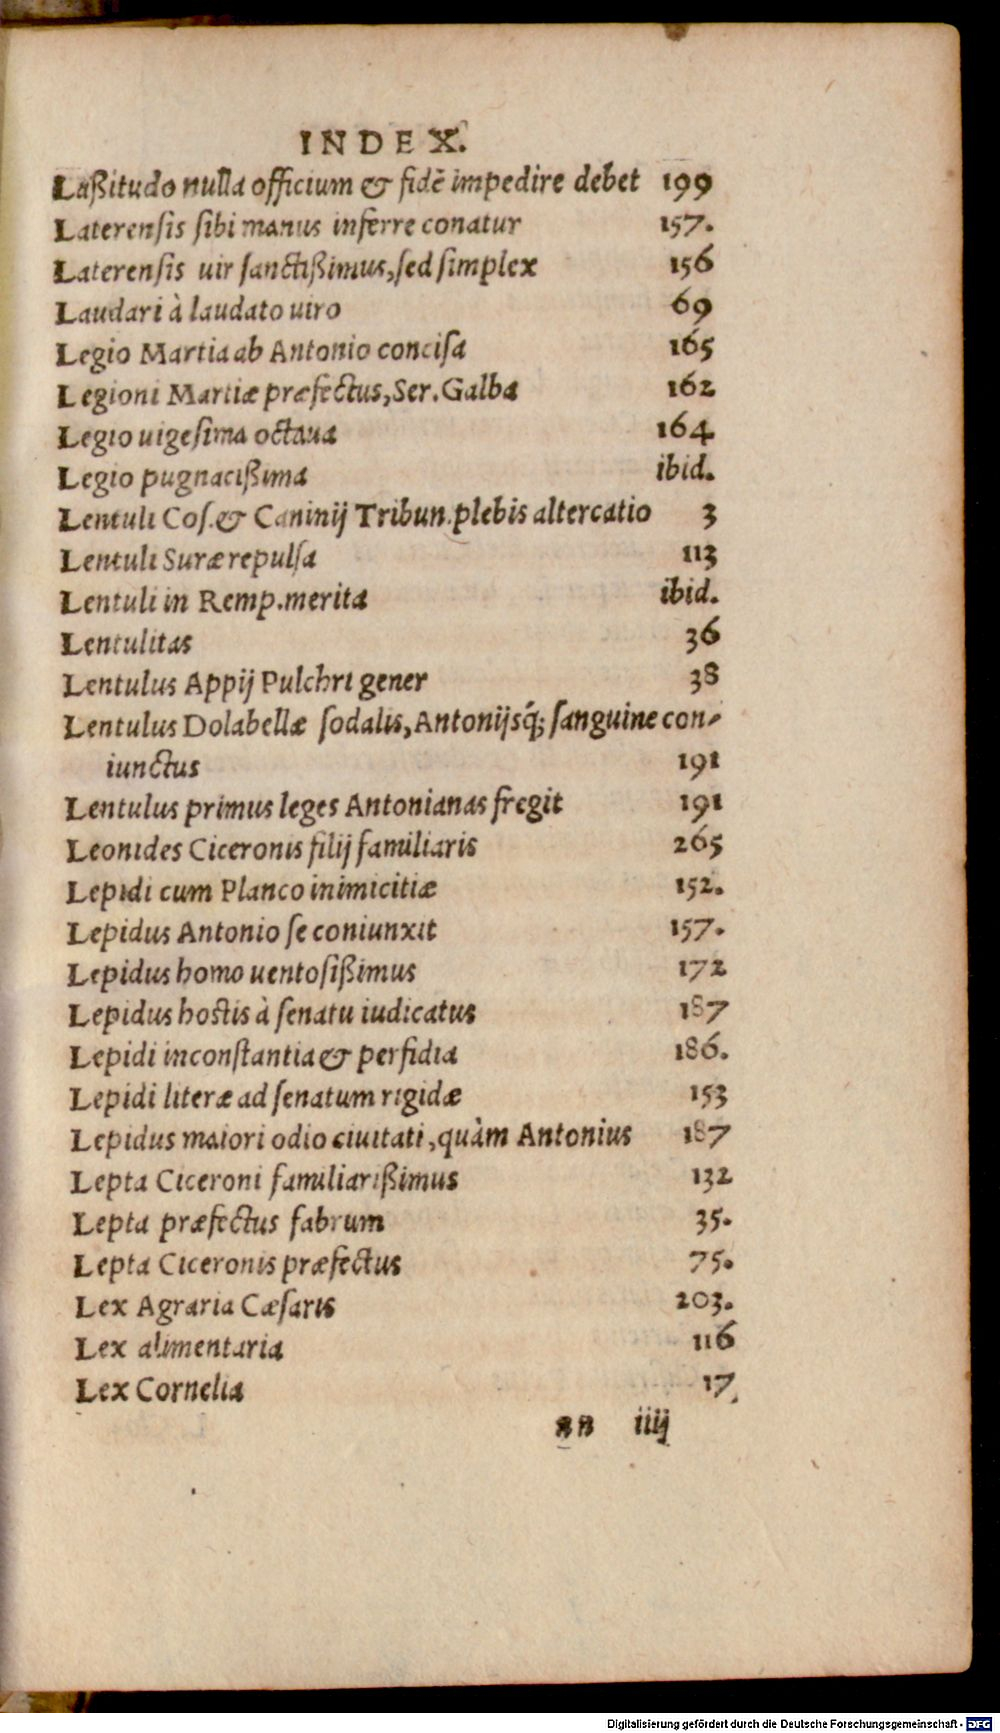 INDEX.
Laßitudo nulla officium & fidē impedire debet 199
Laterensis sibi manus inferre conatur 157.
Laterensis uir sanctißimus, sed simplex 156
Laudari à laudato uiro 69
Legio Martia ab Antonio concisa 165
Legioni Martiæ præfectus, Ser. Galba 162
Legio uigesima octaua 164
Legio pugnacißima ibid.
Lentuli Cos. & Caninij Tribun. plebis altercatio 3
Lentuli Suræ repulsa 113
Lentuli in Remp. merita ibid.
Lentulitas 36
Lentulus Appij Pulchri gener 38
Lentulus Dolabellæ sodalis, Antonijsq́; sanguine con-
iunctus 191
Lentulus primus leges Antonianas fregit 191
Leonides Ciceronis filij familiaris 265
Lepidi cum Planco inimicitiæ 152.
Lepidus Antonio se coniunxit 157.
Lepidus homo uentosißimus 172
Lepidus hostis à senatu iudicatus 187
Lepidi inconstantia & perfidia 186.
Lepidi literæ ad senatum rigidæ 153
Lepidus maiori odio ciuitati, quàm Antonius 187
Lepta Ciceroni familiarißimus 132
Lepta præfectus fabrum 35.
Lepta Ciceronis præfectus 75.
Lex Agraria Cæsaris 203.
Lex alimentaria 116
Lex Cornelia 17.
iiij
Digitalisierung gefördert durch die Deutsche Forschungsgemeinschaft - DFG